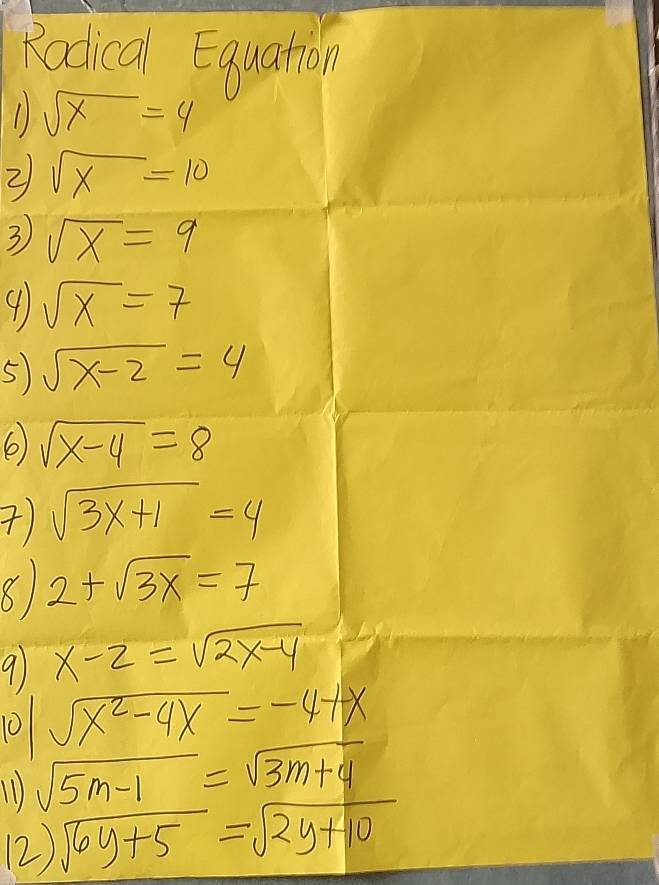 Radical Equation
1) √x = 4
2) √x = 10
3) √x = 9
4) √x = 7
5) √x-2 = 4
6) √x-4 = 8
7) √3x+1 = 4
8) 2+√3x = 7
9) x-2 = √2x-4
10) √x²-4x = -4+x
11) √5m-1 = √3m+4
12) √6y+5 = √2y+10